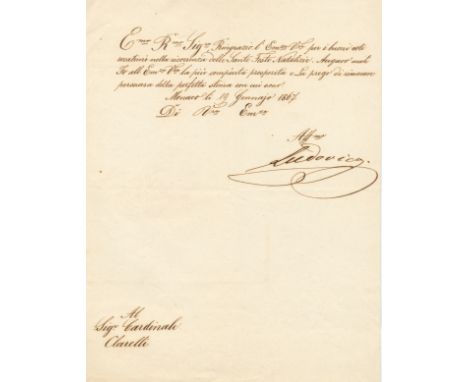 Emo Rmo Sigr. Ringrazio l'Emza Vra per i buoni voti
esternatimi nella ricorrenza delle Sante Feste Natalizie. Auguro anch'
Io all'Emza Vra la più compiuta prosperità e La prego di rimanere
persuasa della perfetta stima con cui sono
Monaco li 19 Gennajo 1867
Di Vra Emza
Affmo
Ludovico.
Al
Sigr Cardinale
Clarelli